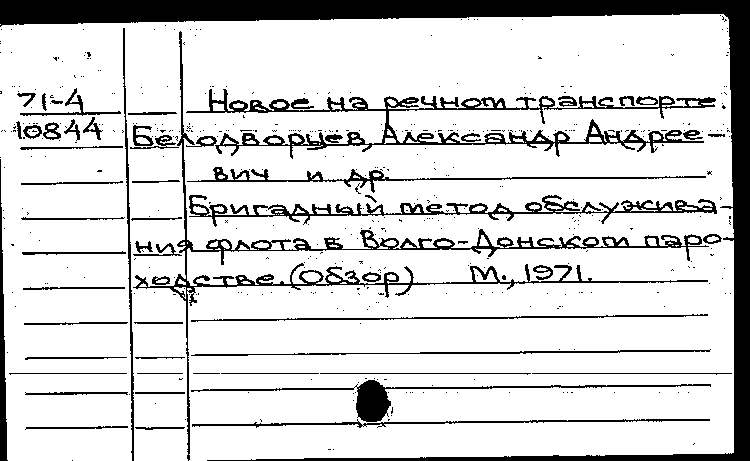 71-4 Новое на речном транспорте.
10844 Белодворцев, Александр Андрее-
вич и др.
Бригадный метод обслужива-
ния флота в Волго-Донском паро-
ходстве. (Обзор) М., 1971.